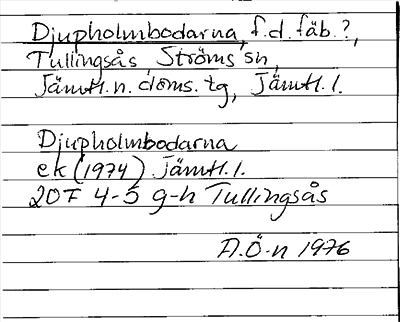 Djupholmbodarna, f.d. fäb.?,
Tullingsås, Ströms sn,
Jämtl. n. doms. tg, Jämtl. l.
Djupholmbodarna
ek (1974) Jämtl. l.
20F 4-5 g-h Tullingsås
A.Ö-n 1976